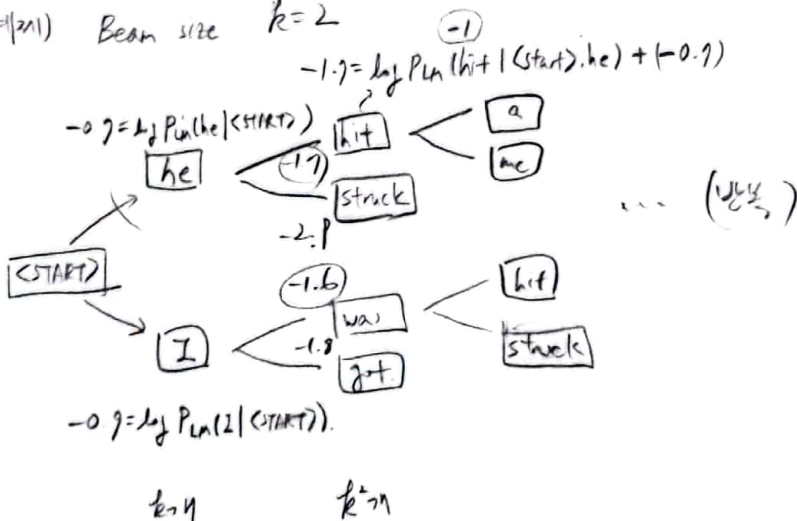 예시) Beam size k=2
-1
-1.7= log P_LM(hit | <start>, he) + (-0.7)
-0.7= log P_LM(he | <START>)
hit
a
he
-1.7
me
struck
... (반복)
-2.9
<START>
-1.6
hit
was
I
-1.8
struck
got
-0.9= log P_LM(I | <START>).
k개
k²개